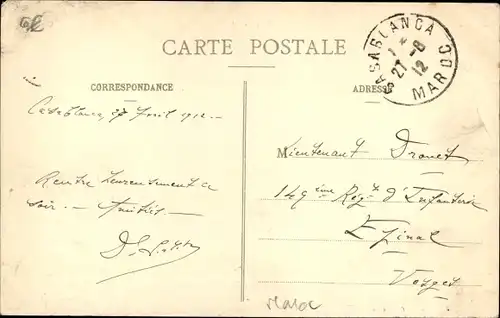 CARTE POSTALE
CORRESPONDANCE
ADRESSE
CASABLANCA
27 -8
12
MAROC
Casablanca 27 1912 -
Lieutenant Drouet
149 ème Rég t d'Infanterie
Epinal
Vosges
Rentré heureusement ce
soir. - Amitiés -
Maroc